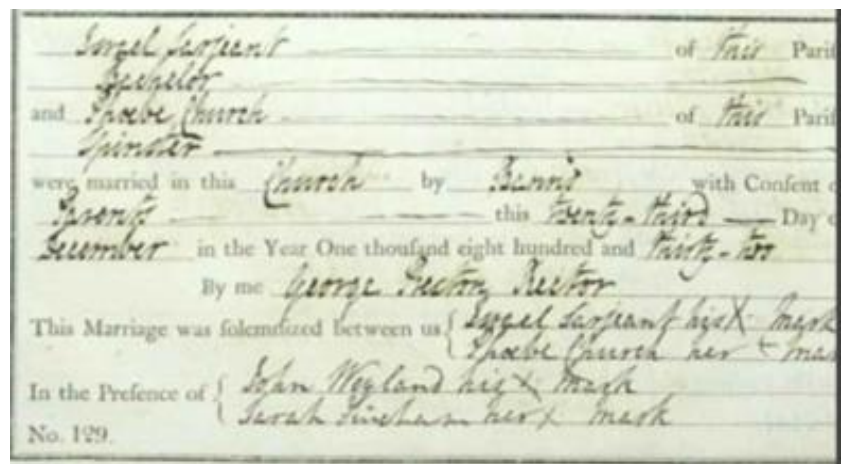 Israel Sarjeant of this Parif
Bachelor
and Phoebe Church of this Parif
Spinster
were married in this Church by Banns with Confent o
Parents this twenty-third Day o
December in the Year One thoufand eight hundred and thirty-two
By me George Preston Rector
This Marriage was folemnized between us { Israel Sarjeant his X mark
Phoebe Church her + mar
In the Prefence of { John Weyland his X mark
Sarah her X mark
No. 129.